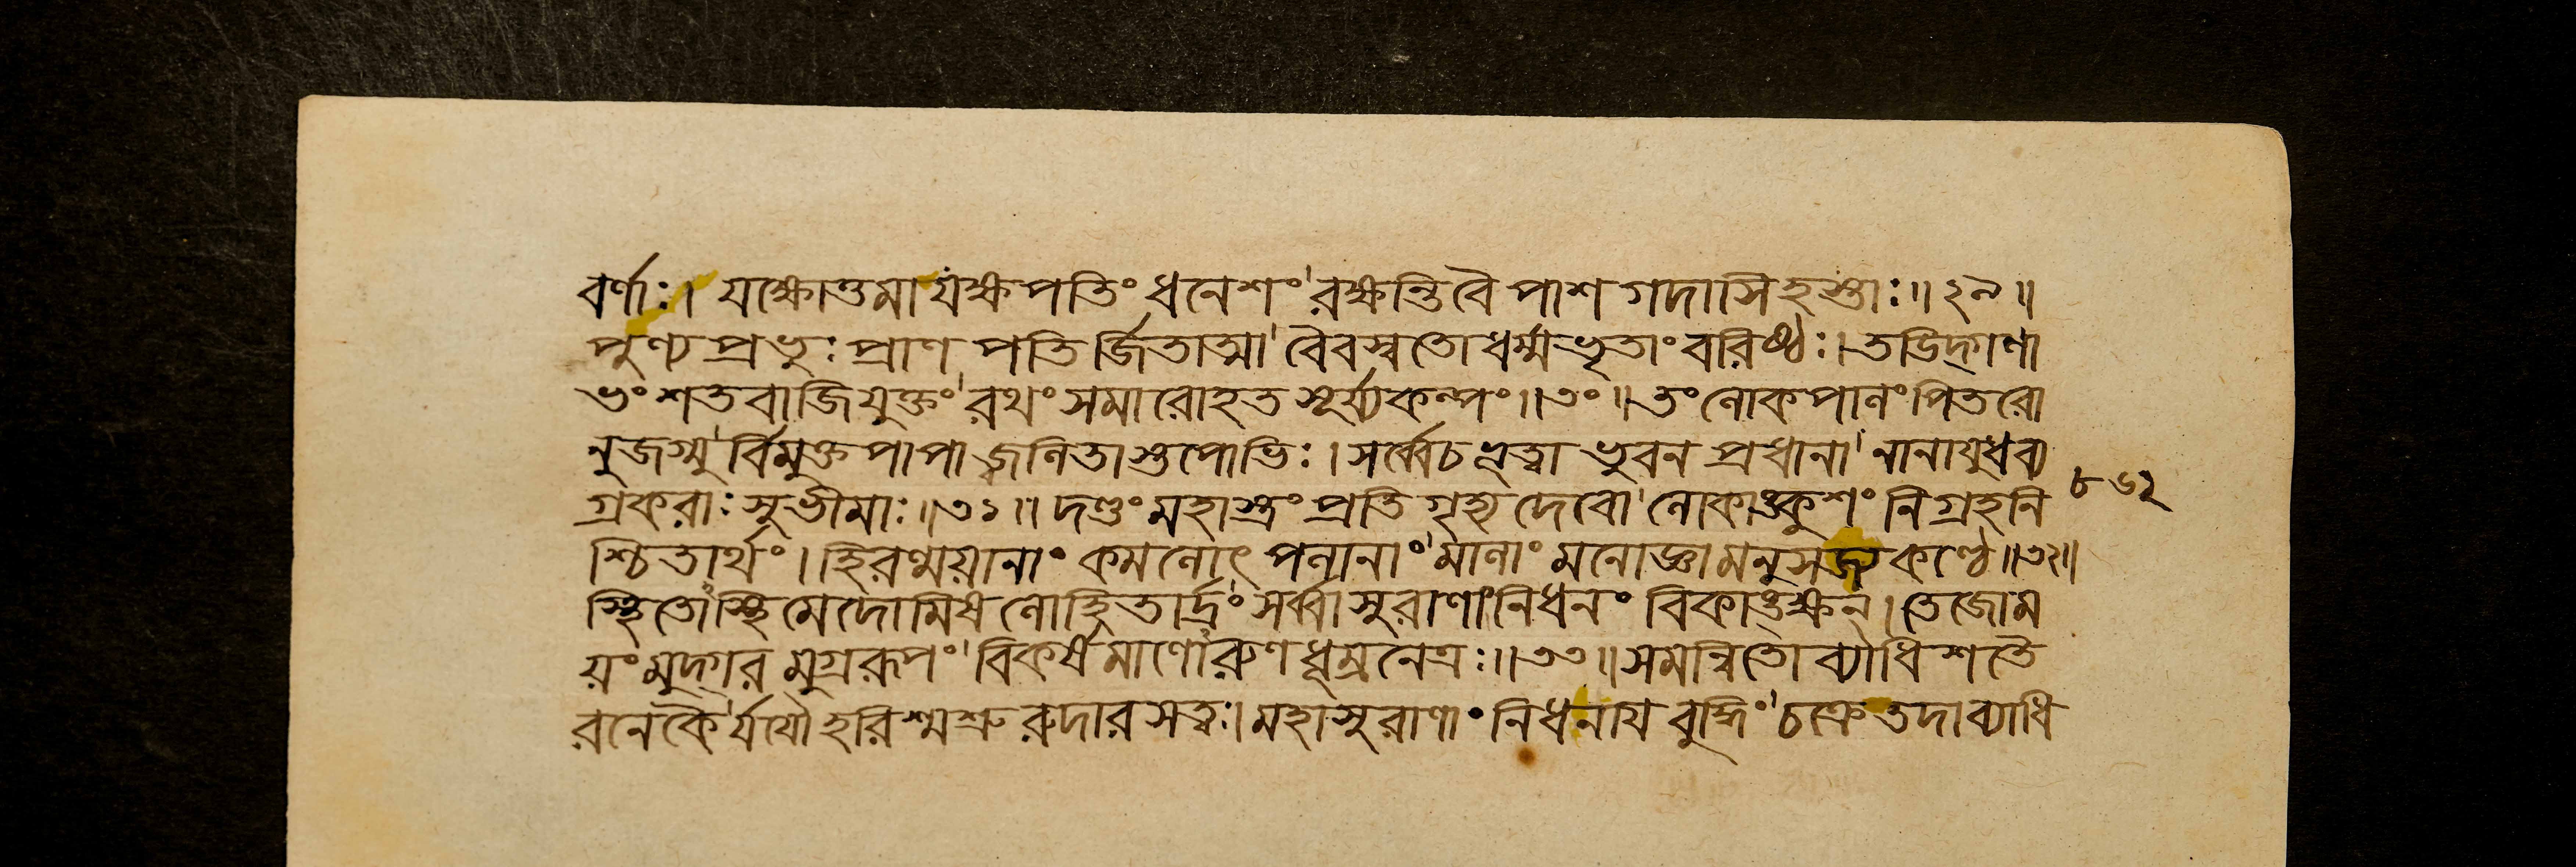 বর্ণাঃ। যক্ষোত্তমা যক্ষপতিং ধনেশং'রক্ষন্তি বৈ পাশ গদাসি হস্তাঃ॥২৯॥
পুণ্য প্রভুঃ প্রাণ পতি র্জিতাত্মা' বৈবস্বতো ধর্ম্মভৃতাং বরিষ্ঠঃ। তডিদ্গণা
ভং শতবাজিযুক্তং'রথং সমারোহত সূর্য্যকল্পং॥৩০॥ তং লোকপালং পিতরো
নুজগ্মু'র্বিমুক্ত পাপা জ্বলিতাস্তপোভিঃ। সর্ব্বে চ ভূত্বা ভুবন প্রধানা' নানাযুধব্য
গ্রকরাঃ সুভীমাঃ॥৩১॥ দণ্ডং মহাস্ত্রং প্রতি গৃহ্য দেবো'লোকাঙ্কুশং নিগ্রহনি
৮৬২
শ্চিতার্থং। হিরণ্ময়ানাং কমলোৎ পলানাং'মালাং মনোজ্ঞামনুসজ্য কণ্ঠে॥৩২॥
স্থিতোঽস্থি মেদোমিষ লোহিতার্দ্রং'সর্ব্বাসুরাণাং নিধনং বিকাঙ্ক্ষন্। তেজোম
য়ং মুদ্গর মুগ্ররূপং'বিকর্ষমাণোঽরুণ ধূম্রনেত্রঃ॥৩৩॥ সমান্বিতো ব্যাধি শতৈ
রনেকৈ'র্যযৌ হরিশ্মশ্রু রুদার সত্বঃ। মহাসুরাণাং নিধনায বুদ্ধিং'চক্রে তদা ব্যাধি